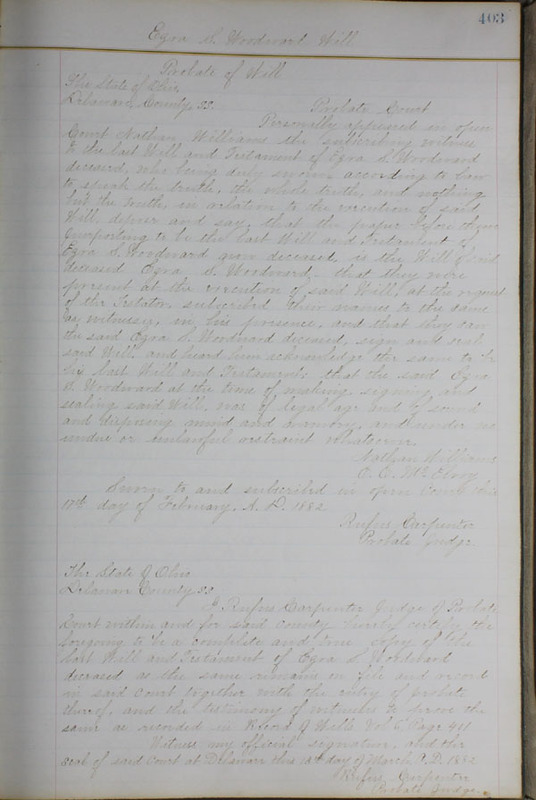 403
Ezra S. Woodward Will
Probate of Will
The State of Ohio,
Delaware County, SS. Probate Court
Personally appeared in open
Court Nathan Williams the subscribing witness
to the last Will and Testament of Ezra S. Woodward
deceased, who being duly sworn according to law
to speak the truth, the whole truth, and nothing
but the truth, in relation to the execution of said
Will, depose and say, that the paper before them
purporting to be the last Will and Testament of
Ezra S. Woodward now deceased, is the Will of said
deceased Ezra S. Woodward, that they were
present at the execution of said Will, at the request
of the Testator, subscribed their names to the same
as witnesses, in his presence, and that they saw
the said Ezra S. Woodward deceased, sign and seal
said Will, and heard him acknowledge the same to be
his last Will and Testament, that the said Ezra
S. Woodward at the time of making, signing and
sealing said Will, was of legal age and of sound
and disposing mind and memory, and under no
undue or unlawful restraint whatsoever.
Nathan Williams
C. C. McElroy
Sworn to and subscribed in open Court this
17th day of February, A. D. 1882
Rufus Carpenter
Probate Judge
The State of Ohio
Delaware County SS.
I Rufus Carpenter Judge of Probate
Court within and for said County hereby certify the
foregoing to be a complete and true copy of the
last Will and Testament of Ezra S. Woodward
deceased as the same remains on file and record
in said Court together with the entry of probate
thereof, and the testimony of witnesses to prove the
same as recorded in Record of Wills Vol 6 Page 411
Witness my official signature, and the
seal of said Court at Delaware this day of March A. D. 1882
Rufus Carpenter
Probate Judge